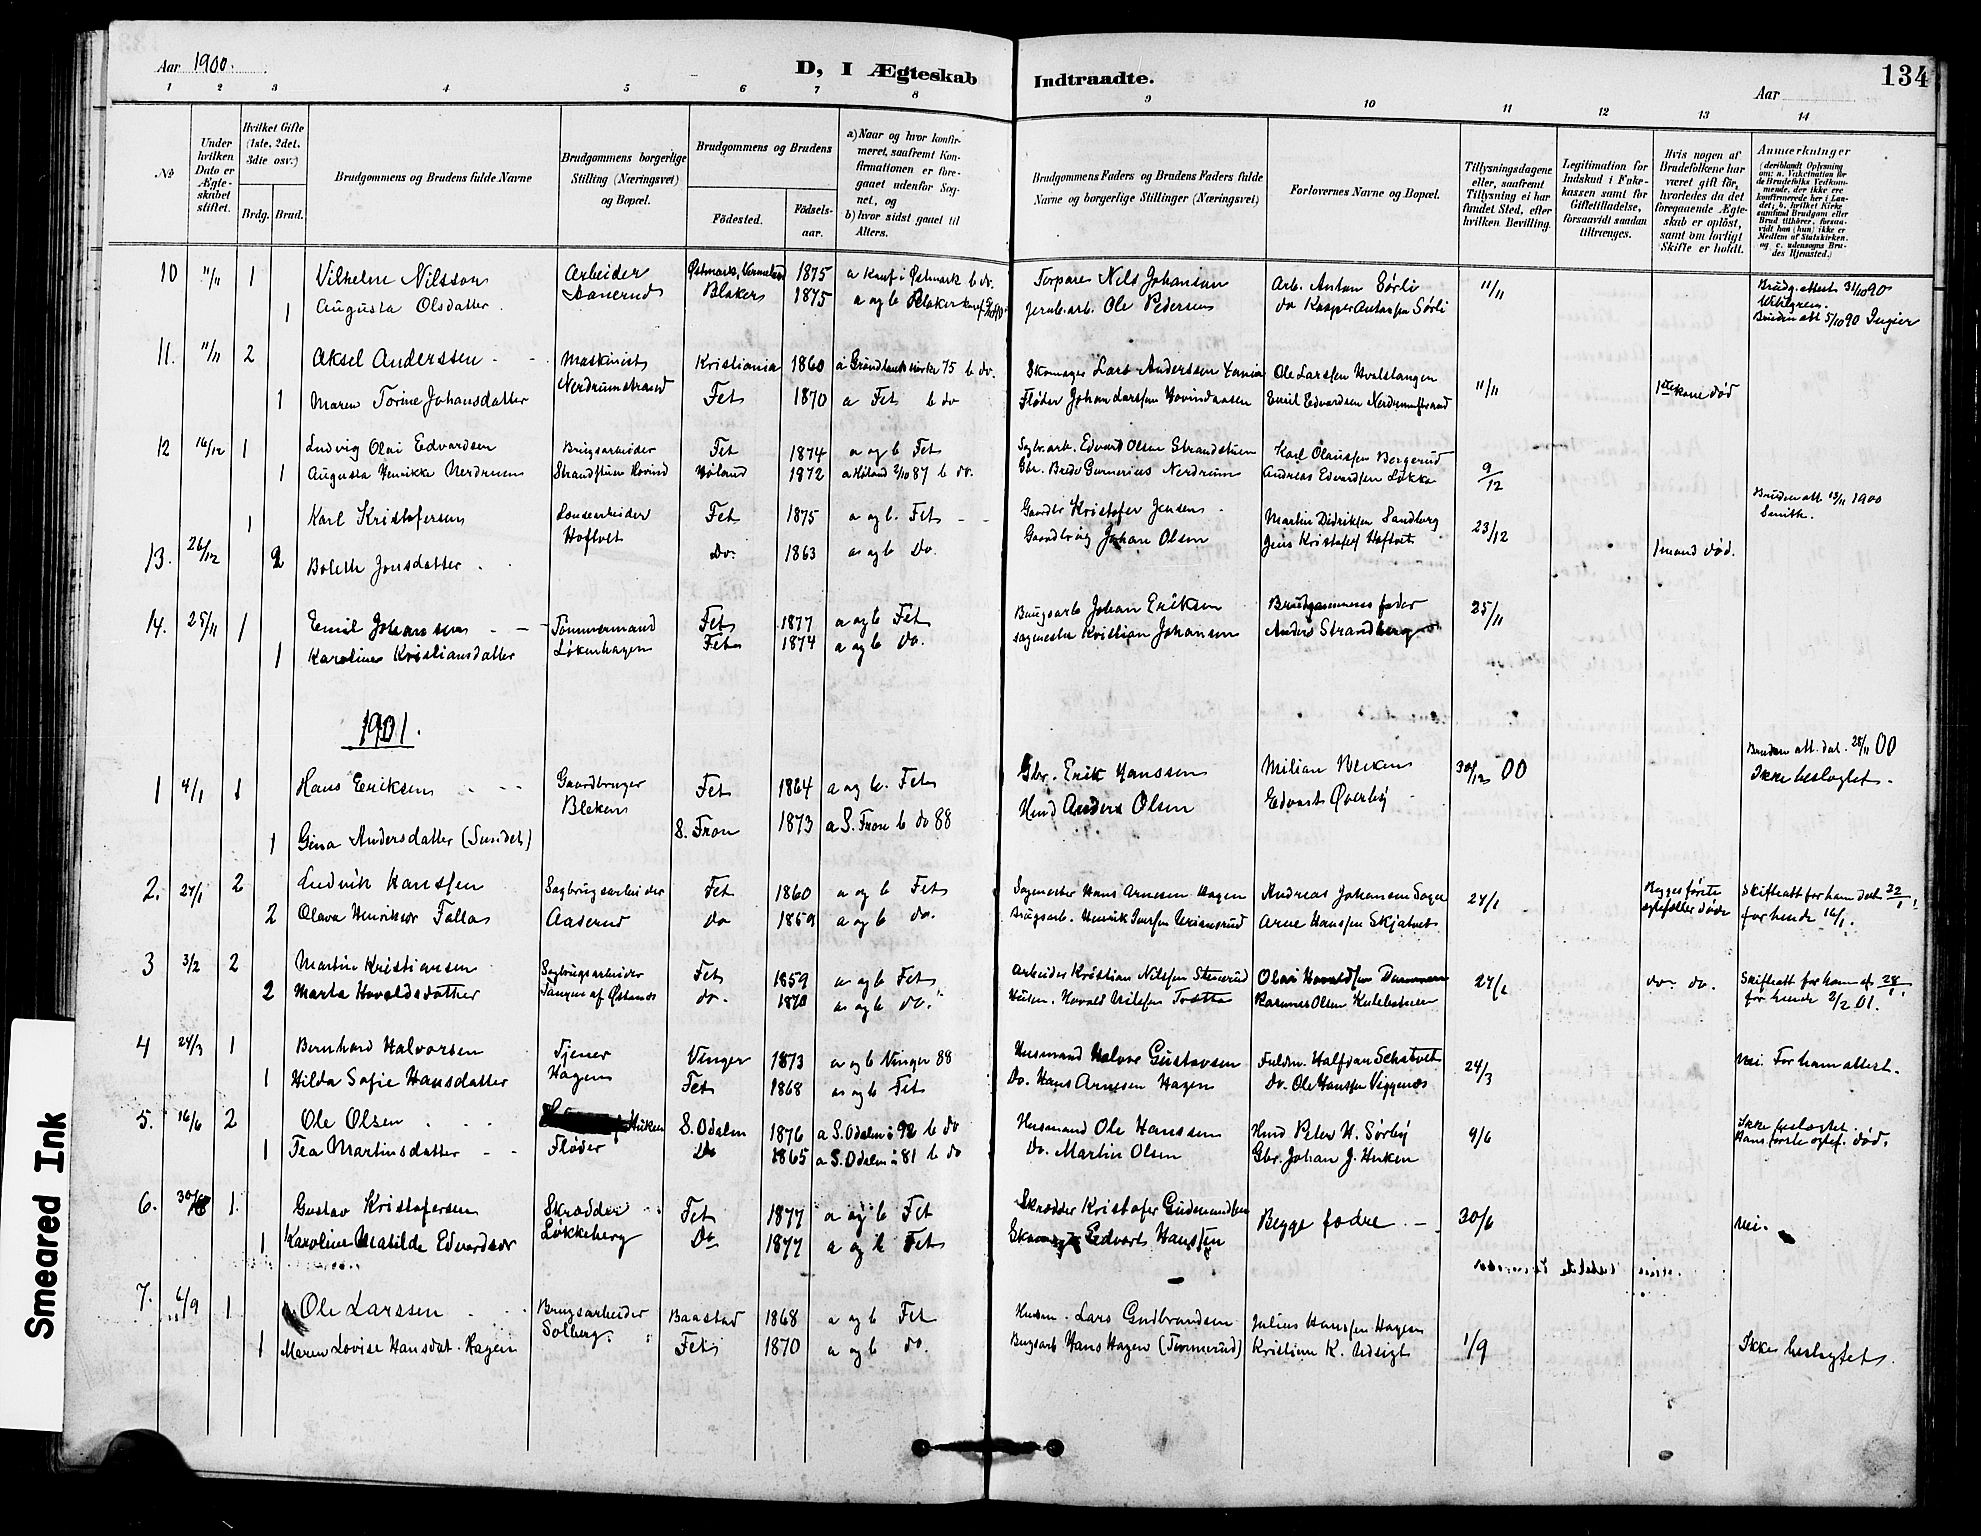 Aar 1900.
D, I Ægteskab Indtraadte.
Aar
134
1 2 3 4 5 6 7 8 9 10 11 12 13 14
№
Under hvilken Dato er Ægteskabet stiftet.
Hvilket Gifte (1ste, 2det, 3die osv.)
Brdg. Brud.
Brudgommens og Brudens fulde Navne
Brudgommens borgerlige Stilling (Næringsvei) og Bopæl.
Brudgommens og Brudens
Fødested.
Fødselsaar.
a) Naar og hvor konfirmeret, saafremt Konfirmationen er foregaaet udenfor Sognet, og
b) hvor sidst gaaet til Alters.
Brudgommens Faders og Brudens Faders fulde Navne og borgerlige Stillinger (Næringsvei)
Forlovernes Navne og Bopæl.
Tillysningsdagene eller, saafremt Tillysning ei har fundet Sted, efter hvilken Bevilling.
Legitimation for Indskud i Enkekassen samt for Giftetilladelse, forsaavidt saadan tiltrænges.
Hvis nogen af Brudefolkene har været gift før, hvorledes da det foregaaende Ægteskab er opløst, samt om lovligt Skifte er holdt.
Anmærkninger
10 11/11 1 Vilhelm Nilsson Arbeider Østmark, Vermland 1875 a Konf i Østmark b do. Torpare Nils Johanson Arb. Anton Sørli 11/11 Brudg. attest 31/10 90
1 Augusta Olsdatter Blaker 1875 Jernb.arb. Ole Pedersen do Kasper Antonsen Sørli Bruden att 5/10 90 Ingier
11. 11/11 2 Aksel Anderssen Maskinist Kristiania 1860 Skomager Lars Anderssen Ole Larssen Hvalstangen 11/11
1 Maren Torine Johansdatter Nerdrumstrand Fet 1870 a Fet b do Fløder Johan Larssen Emil Edvardsen Nerdrumstrand 1ste kone død
12 16/12 1 Ludvig Olai Edvardsen Brugsarbeider Fet 1874 a og b Fet Edvard Olsen Strandstuen Karl Olaussen Bergerud 9/12
1 Augusta Henrikke Nerdrum Strandstuen Hovind Høland 1972 a Høland 2/10 87 b do. Gbr. Nerdrum Andreas Edvardsen Løkke
Bruden att 13/11 1900 Smith.
13. 26/12 1 Karl Kristofersen Hoftvet Fet 1875 a og b. Fet Gaardbr Kristofer Jensen Martin Didriksen Sandberg 23/12
2 Boleth Jonsdatter Do. 1863 a og b Do. Johan Olsen Jens Kristofers Hoftvet 1 mand død.
14. 25/11 1 Emil Johansen Tømmermand Fet 1877 a og b Fet Brugsarb Johan Eriksen Brudgommens fader 25/11
1 Karoline Kristiansdatter Løkenhagen Fet 1874 a og b do. sagmester Kristian Johansen Anders Strandberg
1901.
1 4/1 1 Hans Eriksen Gaardbruger Bleken Fet 1864 a og b. Fet Gbr. Erik Hanssen Milian Bleken 30/12 00 Bruden att. dat. 28/11 00
1 Gina Andersdatter S. Fron 1873 a S. Fron b do 88 Hmd Anders Olsen Edvart Øverby Ikke beslegtet.
2. 27/1 2 Ludvik Hanssen Sagbrugsarbeider Fet 1860 a og b Fet Sagmester Hans Arnesen Hagen Andreas Johansen 27/1 Begges første egtefeller døde Skifteatt for ham dat 22/1
2 Olava Henriksdr Falla Aaserud do 1859 a og b do. Brugsarb. Henrik Arne Hanssen Skjatvet for hende 16/1.
3 3/2 2 Martin Kristiansen Sagbrugsarbeider Fet 1859 a og b Fet Arbeider Kristian Nilssen Stenerud 27/1 do. do. Skifteatt for ham af 28/1
2 Marta Hovaldsdatter Tangen af Østanes do. 1870 a og b do. Husm. Hovald Nilssen Trætta Rasmus Olsen for hende 2/2 01.
4 24/3 1 Bernhard Halvorsen Tjener Vinger 1873 a og b Vinger 88 Husmand Halvor Gustavsen Fuldm. Halfdan 24/3 nei. For ham attest.
1 Hilda Sofie Hansdatter Hagen Fet 1868 a og b Fet Do. Hans Arnesen Hagen Do. Ole Hanssen Viggenes
5. 16/6 2 Ole Olsen Huken S. Odalen 1876 a S. Odalen i 92 b do Husmand Ole Hanssen Hmd Peter H. Sørby 9/6 Ikke beslegtet.
1 Tea Martinsdatter Fløder Do 1865 a S. Odalen i 81 b do Do. Martin Olsen Gbr. Johan J. Huken Hans første egtef. død.
6. 30/6 1. Gustav Kristofersen Skrædder Fet 1877 a og b Fet Skrædder Kristofer Gudmundsen Begge fædre 30/6 nei.
1 Karoline Matilde Edvardsdr Løkkeberg Do 1877 a og b Fet Edvart Hanssen
7. 1/9 1 Ole Larssen Brugsarbeider Baastad 1868 a og b Fet Husm. Lars Gudbrandsen Julius Hanssen Hagen 1/9 Ikke beslegtet.
1 Maren Lovise Hansdat. Hagen Solberg. Fet 1870 a og b do. Brugsarb Hans Hagen Kristian K. Udsigt
Smeared Ink